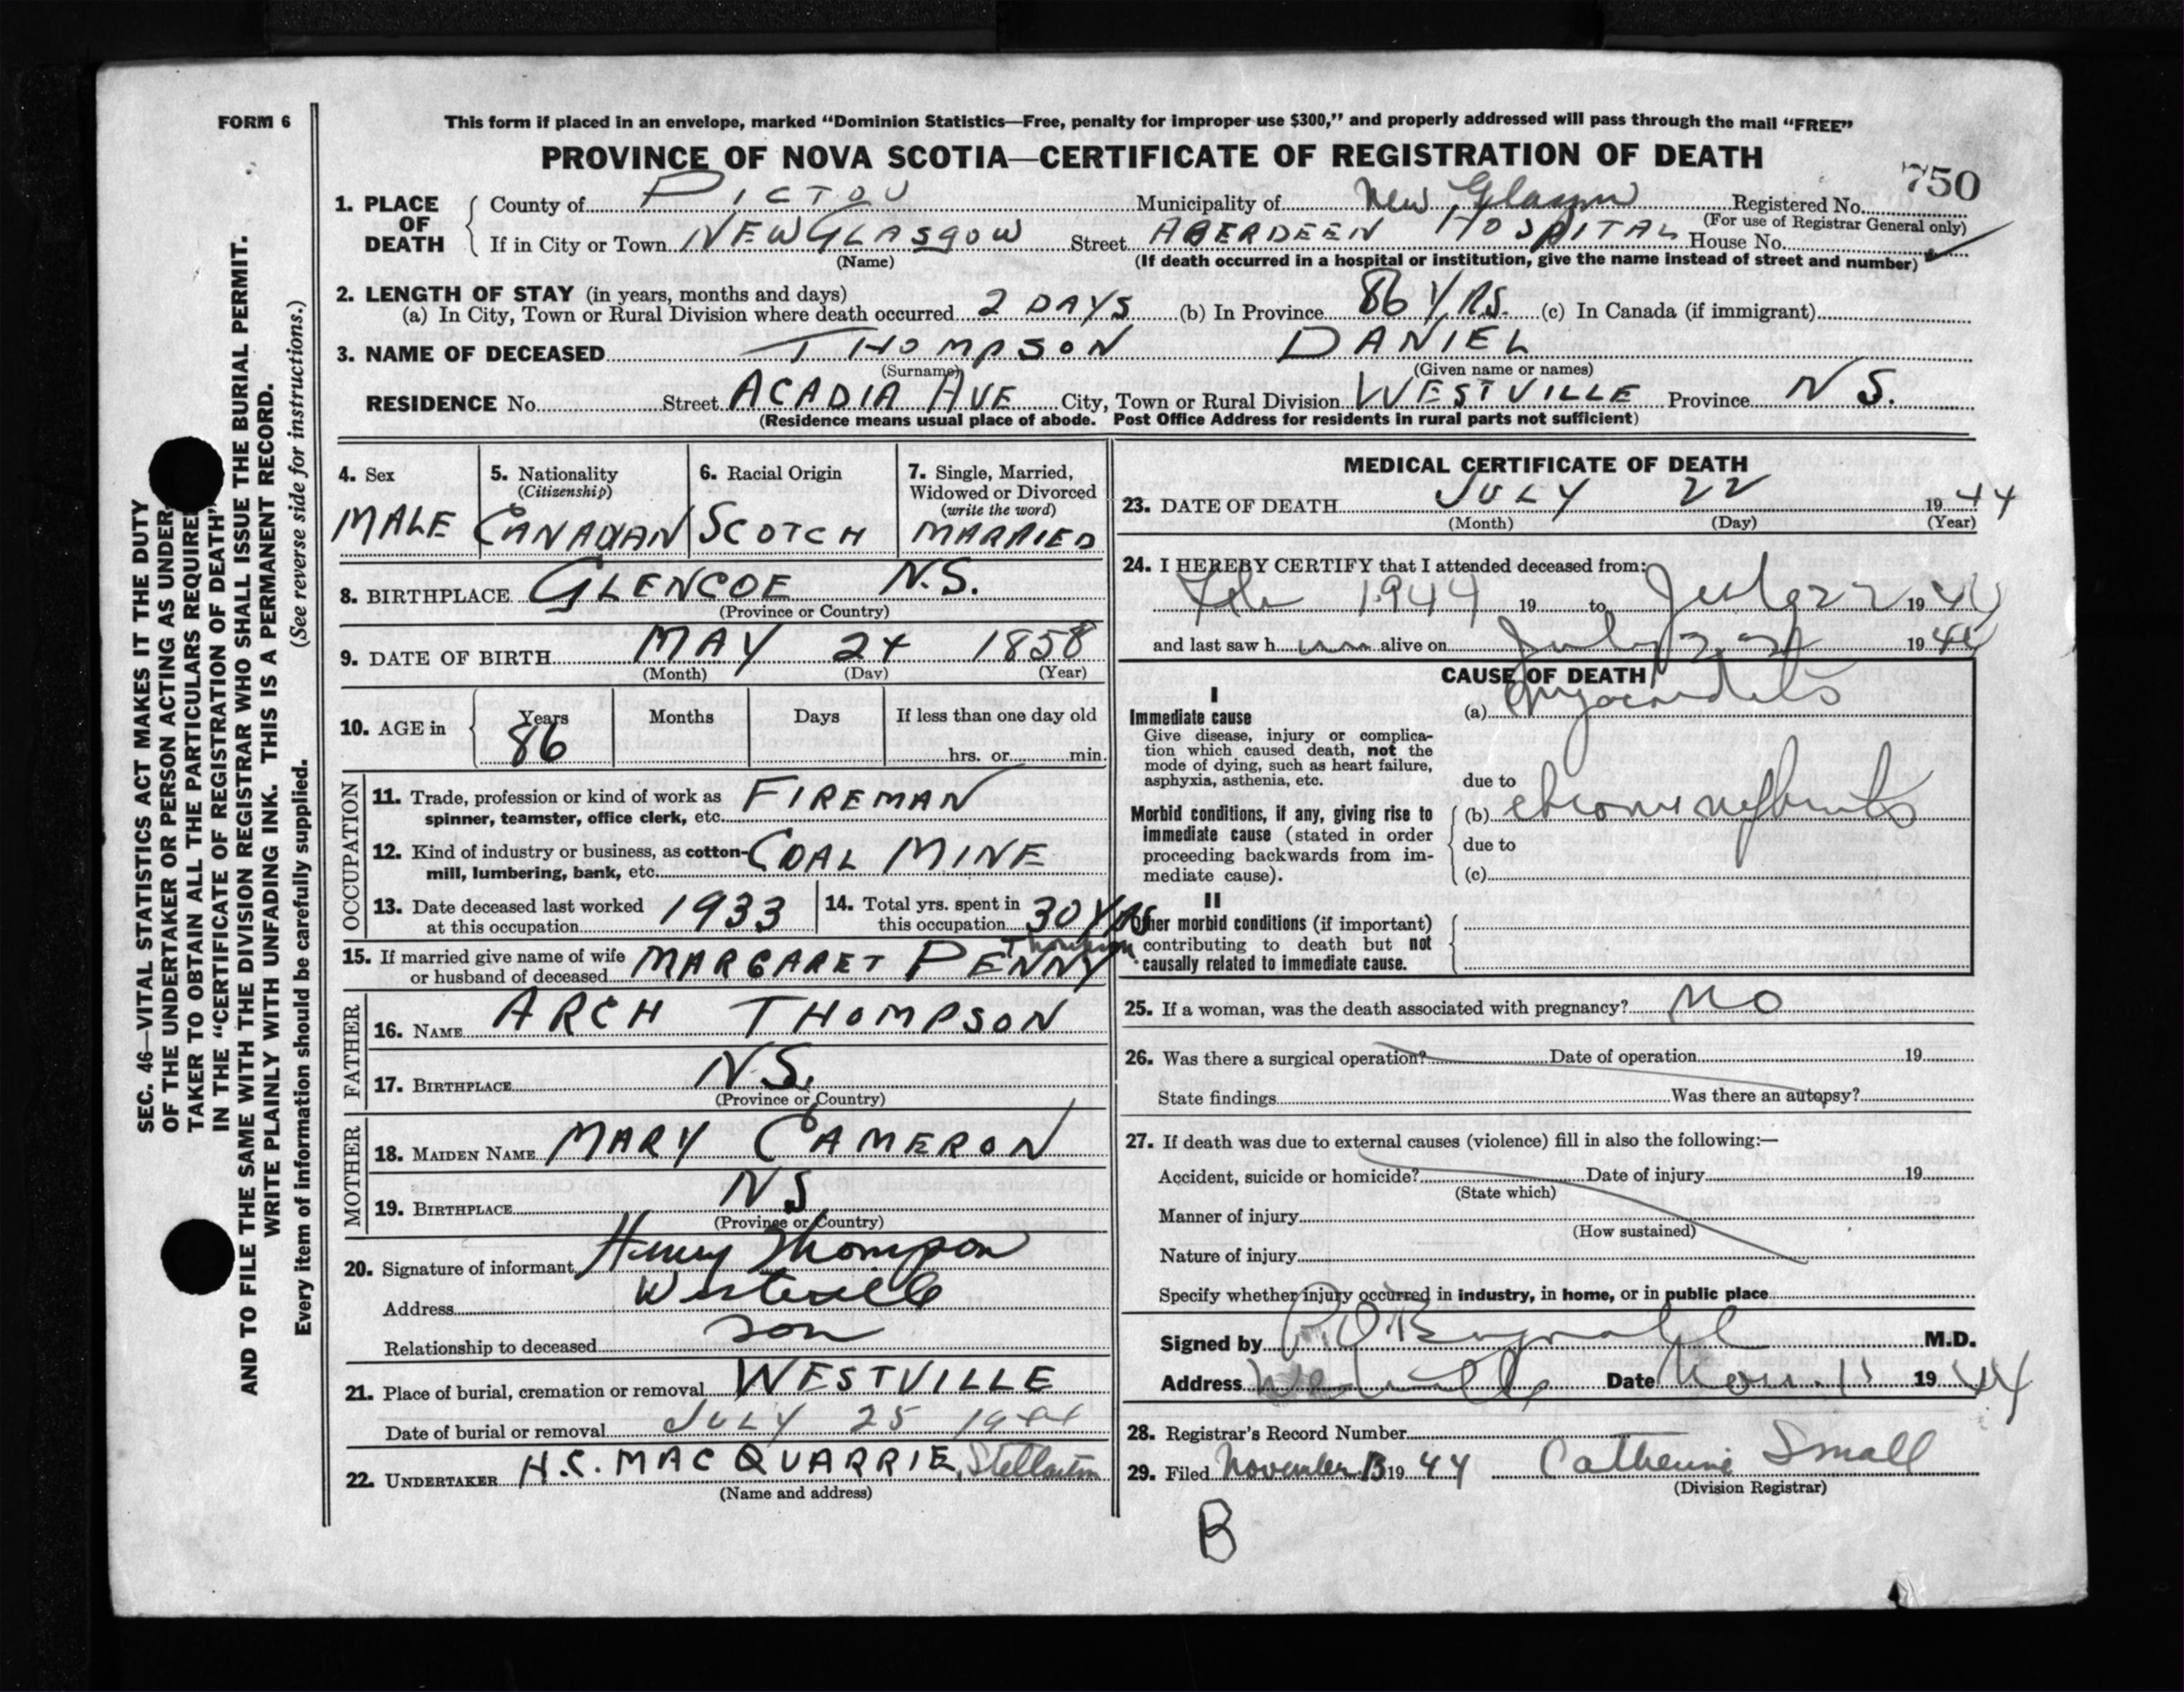 FORM 6
This form if placed in an envelope, marked “Dominion Statistics—Free, penalty for improper use $300,” and properly addressed will pass through the mail “FREE”
PROVINCE OF NOVA SCOTIA—CERTIFICATE OF REGISTRATION OF DEATH
750
1. PLACE OF DEATH
County of PICTOU Municipality of New Glasgow Registered No.
(For use of Registrar General only)
If in City or Town NEW GLASGOW Street ABERDEEN HOSPITAL House No.
(Name) (If death occurred in a hospital or institution, give the name instead of street and number)
2. LENGTH OF STAY (in years, months and days)
(a) In City, Town or Rural Division where death occurred 2 DAYS (b) In Province 86 YRS. (c) In Canada (if immigrant)
3. NAME OF DECEASED THOMPSON DANIEL
(Surname) (Given name or names)
RESIDENCE No. Street ACADIA AVE City, Town or Rural Division WESTVILLE Province N S.
(Residence means usual place of abode. Post Office Address for residents in rural parts not sufficient)
4. Sex
MALE
5. Nationality
(Citizenship)
CANADIAN
6. Racial Origin
SCOTCH
7. Single, Married,
Widowed or Divorced
(write the word)
MARRIED
8. BIRTHPLACE GLENCOE N.S.
(Province or Country)
9. DATE OF BIRTH MAY 24 1858
(Month) (Day) (Year)
10. AGE in
Years Months Days If less than one day old
86 hrs. or min.
OCCUPATION
11. Trade, profession or kind of work as FIREMAN
spinner, teamster, office clerk, etc.
12. Kind of industry or business, as cotton- COAL MINE
mill, lumbering, bank, etc.
13. Date deceased last worked 1933
at this occupation
14. Total yrs. spent in
this occupation 30 YRS
15. If married give name of wife
or husband of deceased MARGARET PENNY Thompson
FATHER
16. NAME ARCH THOMPSON
17. BIRTHPLACE N.S.
(Province or Country)
MOTHER
18. MAIDEN NAME MARY CAMERON
19. BIRTHPLACE NS
(Province or Country)
20. Signature of informant Henry Thompson
Address Westville
Relationship to deceased son
21. Place of burial, cremation or removal WESTVILLE
Date of burial or removal JULY 25 1944
22. UNDERTAKER H.C. MACQUARRIE, Stellarton
(Name and address)
MEDICAL CERTIFICATE OF DEATH
23. DATE OF DEATH JULY 22 1944
(Month) (Day) (Year)
24. I HEREBY CERTIFY that I attended deceased from:
Feb 1944 19 to July 22 1944
and last saw h im alive on July 22 1944
CAUSE OF DEATH
I
Immediate cause
Give disease, injury or complica-
tion which caused death, not the
mode of dying, such as heart failure,
asphyxia, asthenia, etc.
(a) Myocarditis
due to
Morbid conditions, if any, giving rise to
immediate cause (stated in order
proceeding backwards from im-
mediate cause).
(b) chronic nephritis
due to
(c)
II
Other morbid conditions (if important)
contributing to death but not
causally related to immediate cause.
25. If a woman, was the death associated with pregnancy? No
26. Was there a surgical operation? Date of operation 19
State findings Was there an autopsy?
27. If death was due to external causes (violence) fill in also the following:—
Accident, suicide or homicide? Date of injury 19
(State which)
Manner of injury
(How sustained)
Nature of injury
Specify whether injury occurred in industry, in home, or in public place
Signed by M.D.
Address Westville Date Nov. 11 1944
28. Registrar's Record Number
29. Filed November 13 1944 Catherine Small
(Division Registrar)
B
SEC. 46—VITAL STATISTICS ACT MAKES IT THE DUTY
OF THE UNDERTAKER OR PERSON ACTING AS UNDER-
TAKER TO OBTAIN ALL THE PARTICULARS REQUIRED
IN THE “CERTIFICATE OF REGISTRATION OF DEATH”
AND TO FILE THE SAME WITH THE DIVISION REGISTRAR WHO SHALL ISSUE THE BURIAL PERMIT.
WRITE PLAINLY WITH UNFADING INK. THIS IS A PERMANENT RECORD.
Every item of information should be carefully supplied. (See reverse side for instructions.)